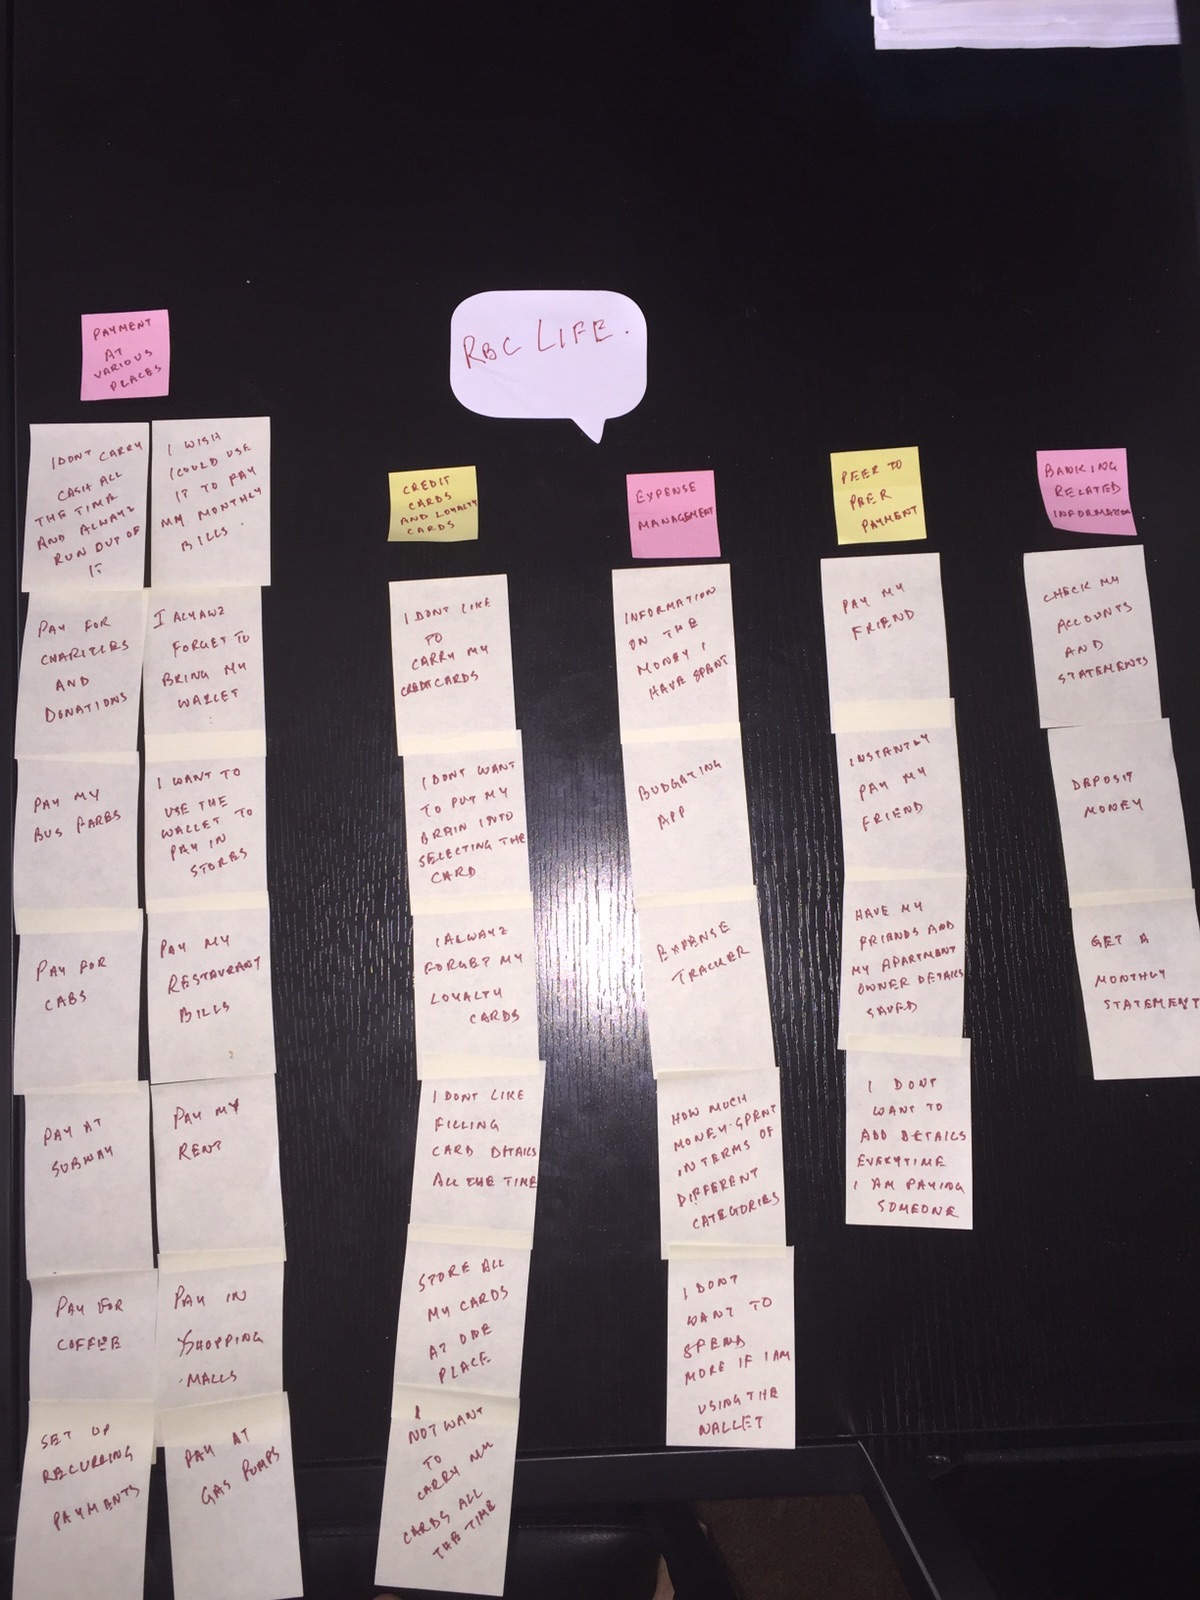 RBC LIFE.
PAYMENT
AT
VARIOUS
PLACES
I DONT CARRY
CASH ALL
THE TIME
AND ALWAYZ
RUN OUT OF
IT
PAY FOR
CHARITIES
AND
DONATIONS
PAY MY
BUS FARES
PAY FOR
CABS
PAY AT
SUBWAY
PAY FOR
COFFEE
SET UP
RECURRING
PAYMENTS
I WISH
I COULD USE
IT TO PAY
MY MONTHLY
BILLS.
I ALYAWZ
FORGET TO
BRING MY
WALLET
I WANT TO
USE THE
WALLET TO
PAY IN
STORES
PAY MY
RESTAURANT
BILLS
PAY MY
RENT
PAY IN
SHOPPING
MALLS
PAY AT
GAS PUMPS
CREDIT
CARDS
AND LOYALTY
CARDS
I DONT LIKE
TO
CARRY MY
CREDIT CARDS
I DONT WANT
TO PUT MY
BRAIN INTO
SELECTING THE
CARD
I ALWAYZ
FORGET MY
LOYALTY
CARDS
I DONT LIKE
FILLING
CARD DETAILS
ALL THE TIME
STORE ALL
MY CARDS
AT ONE
PLACE
I
NOT WANT
TO
CARRY MY
CARDS ALL
THE TIME
EXPENSE
MANAGEMENT
INFORMATION
ON THE
MONEY I
HAVE SPENT
BUDGATING
APP
EXPENSE
TRACKER
HOW MUCH
MONEY SPENT
IN TERMS OF
DIFFERENT
CATEGORIES
I DONT
WANT TO
SPEND
MORE IF I AM
USING THE
WALLET
PEER TO
PEER
PAYMENT
PAY MY
FRIEND
INSTANTLY
PAY MY
FRIEND
HAVE MY
FRIENDS AND
MY APARTMENT
OWNER DETAILS
SAVED
I DONT
WANT TO
ADD DETAILS
EVERYTIME
I AM PAYING
SOMEONE
BANKING
RELATED
INFORMATION
CHECK MY
ACCOUNTS
AND
STATEMENTS
DEPOSIT
MONEY
GET A
MONTHLY
STATEMENT